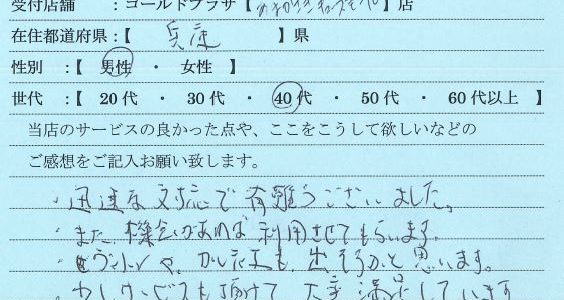 受付店舗 : ゴールドプラザ【 】店
在住都道府県:【 兵庫 】県
性別 :【 男性 ・ 女性 】
世代 :【 20代 ・ 30代 ・ 40代 ・ 50代 ・ 60代以上 】
当店のサービスの良かった点や、ここをこうして欲しいなどの
ご感想をご記入お願い致します。
・迅速な対応で有難うございました。
・また、機会があれば利用させてもらいます。
も、出そうかと思います。
少しサービスも頂けて大変満足しています